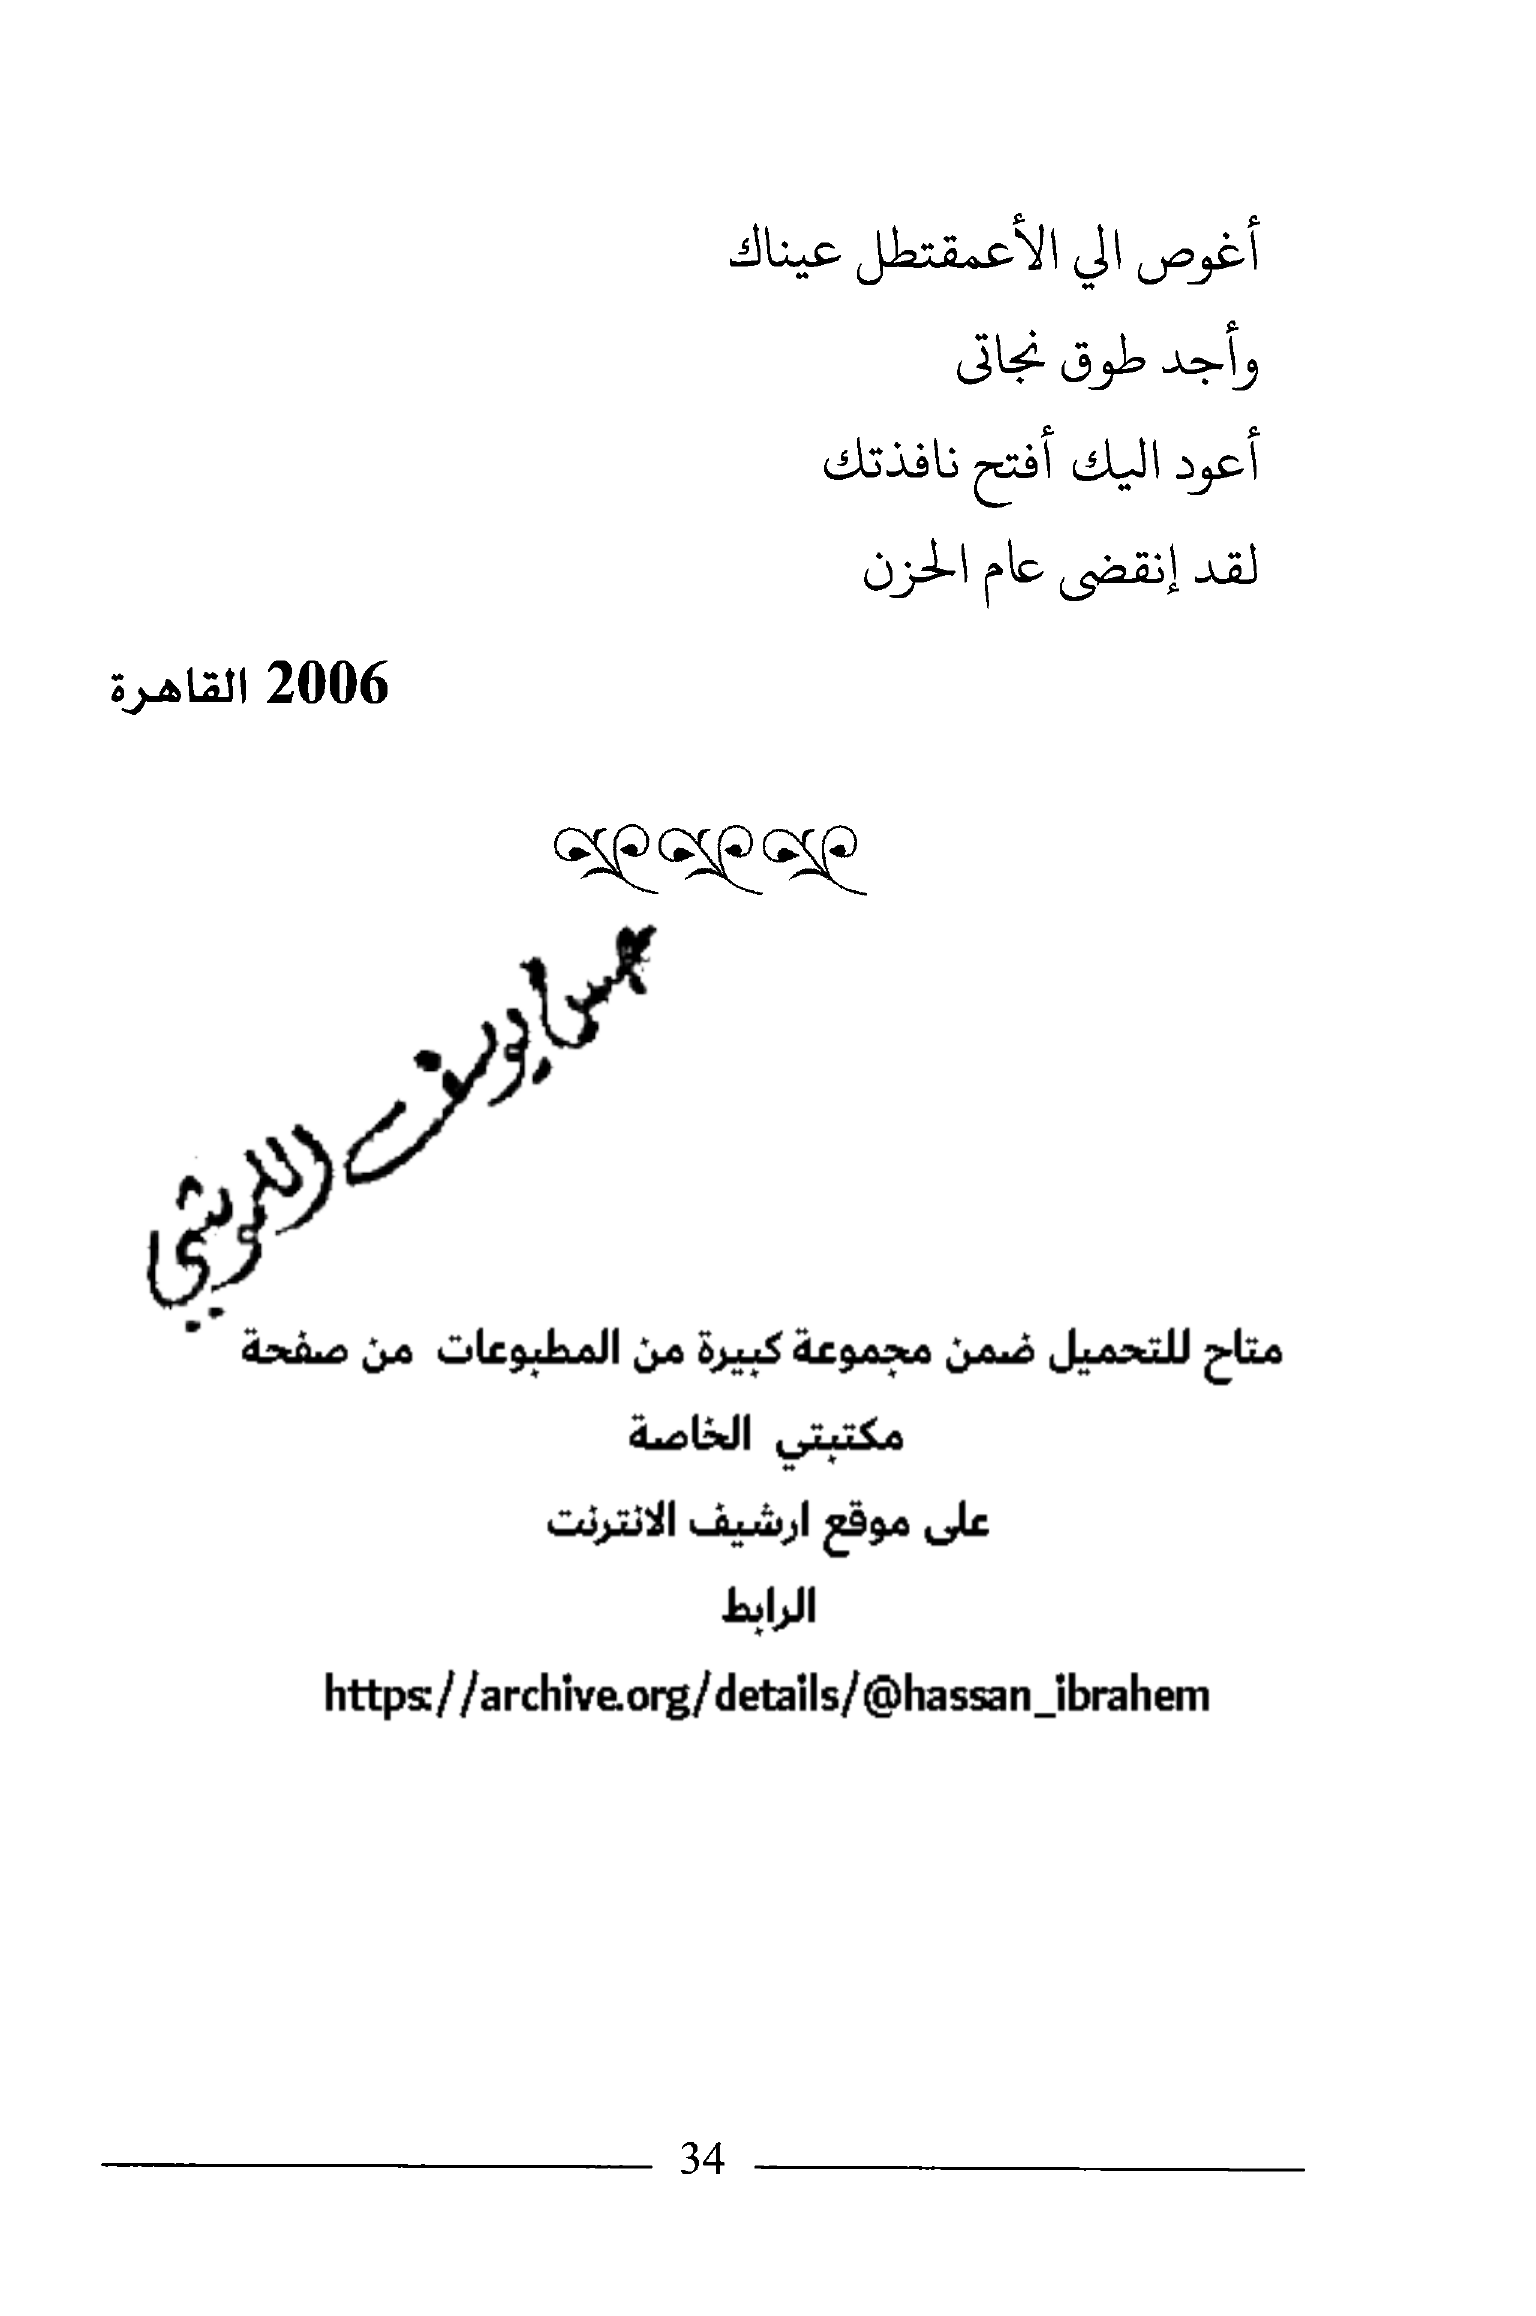 أغوص الي الأعمقتطل عيناك
وأجد طوق نجاتى
أعود اليك أفتح نافذتك
لقد إنقضى عام الحزن
2006 القاهرة
يوسف
متاح للتحميل ضمن مجموعة كبيرة من المطبوعات من صفحة
مكتبتي الخاصة
على موقع ارشيف الانترنت
الرابط
https://archive.org/details/@hassan_ibrahem
34